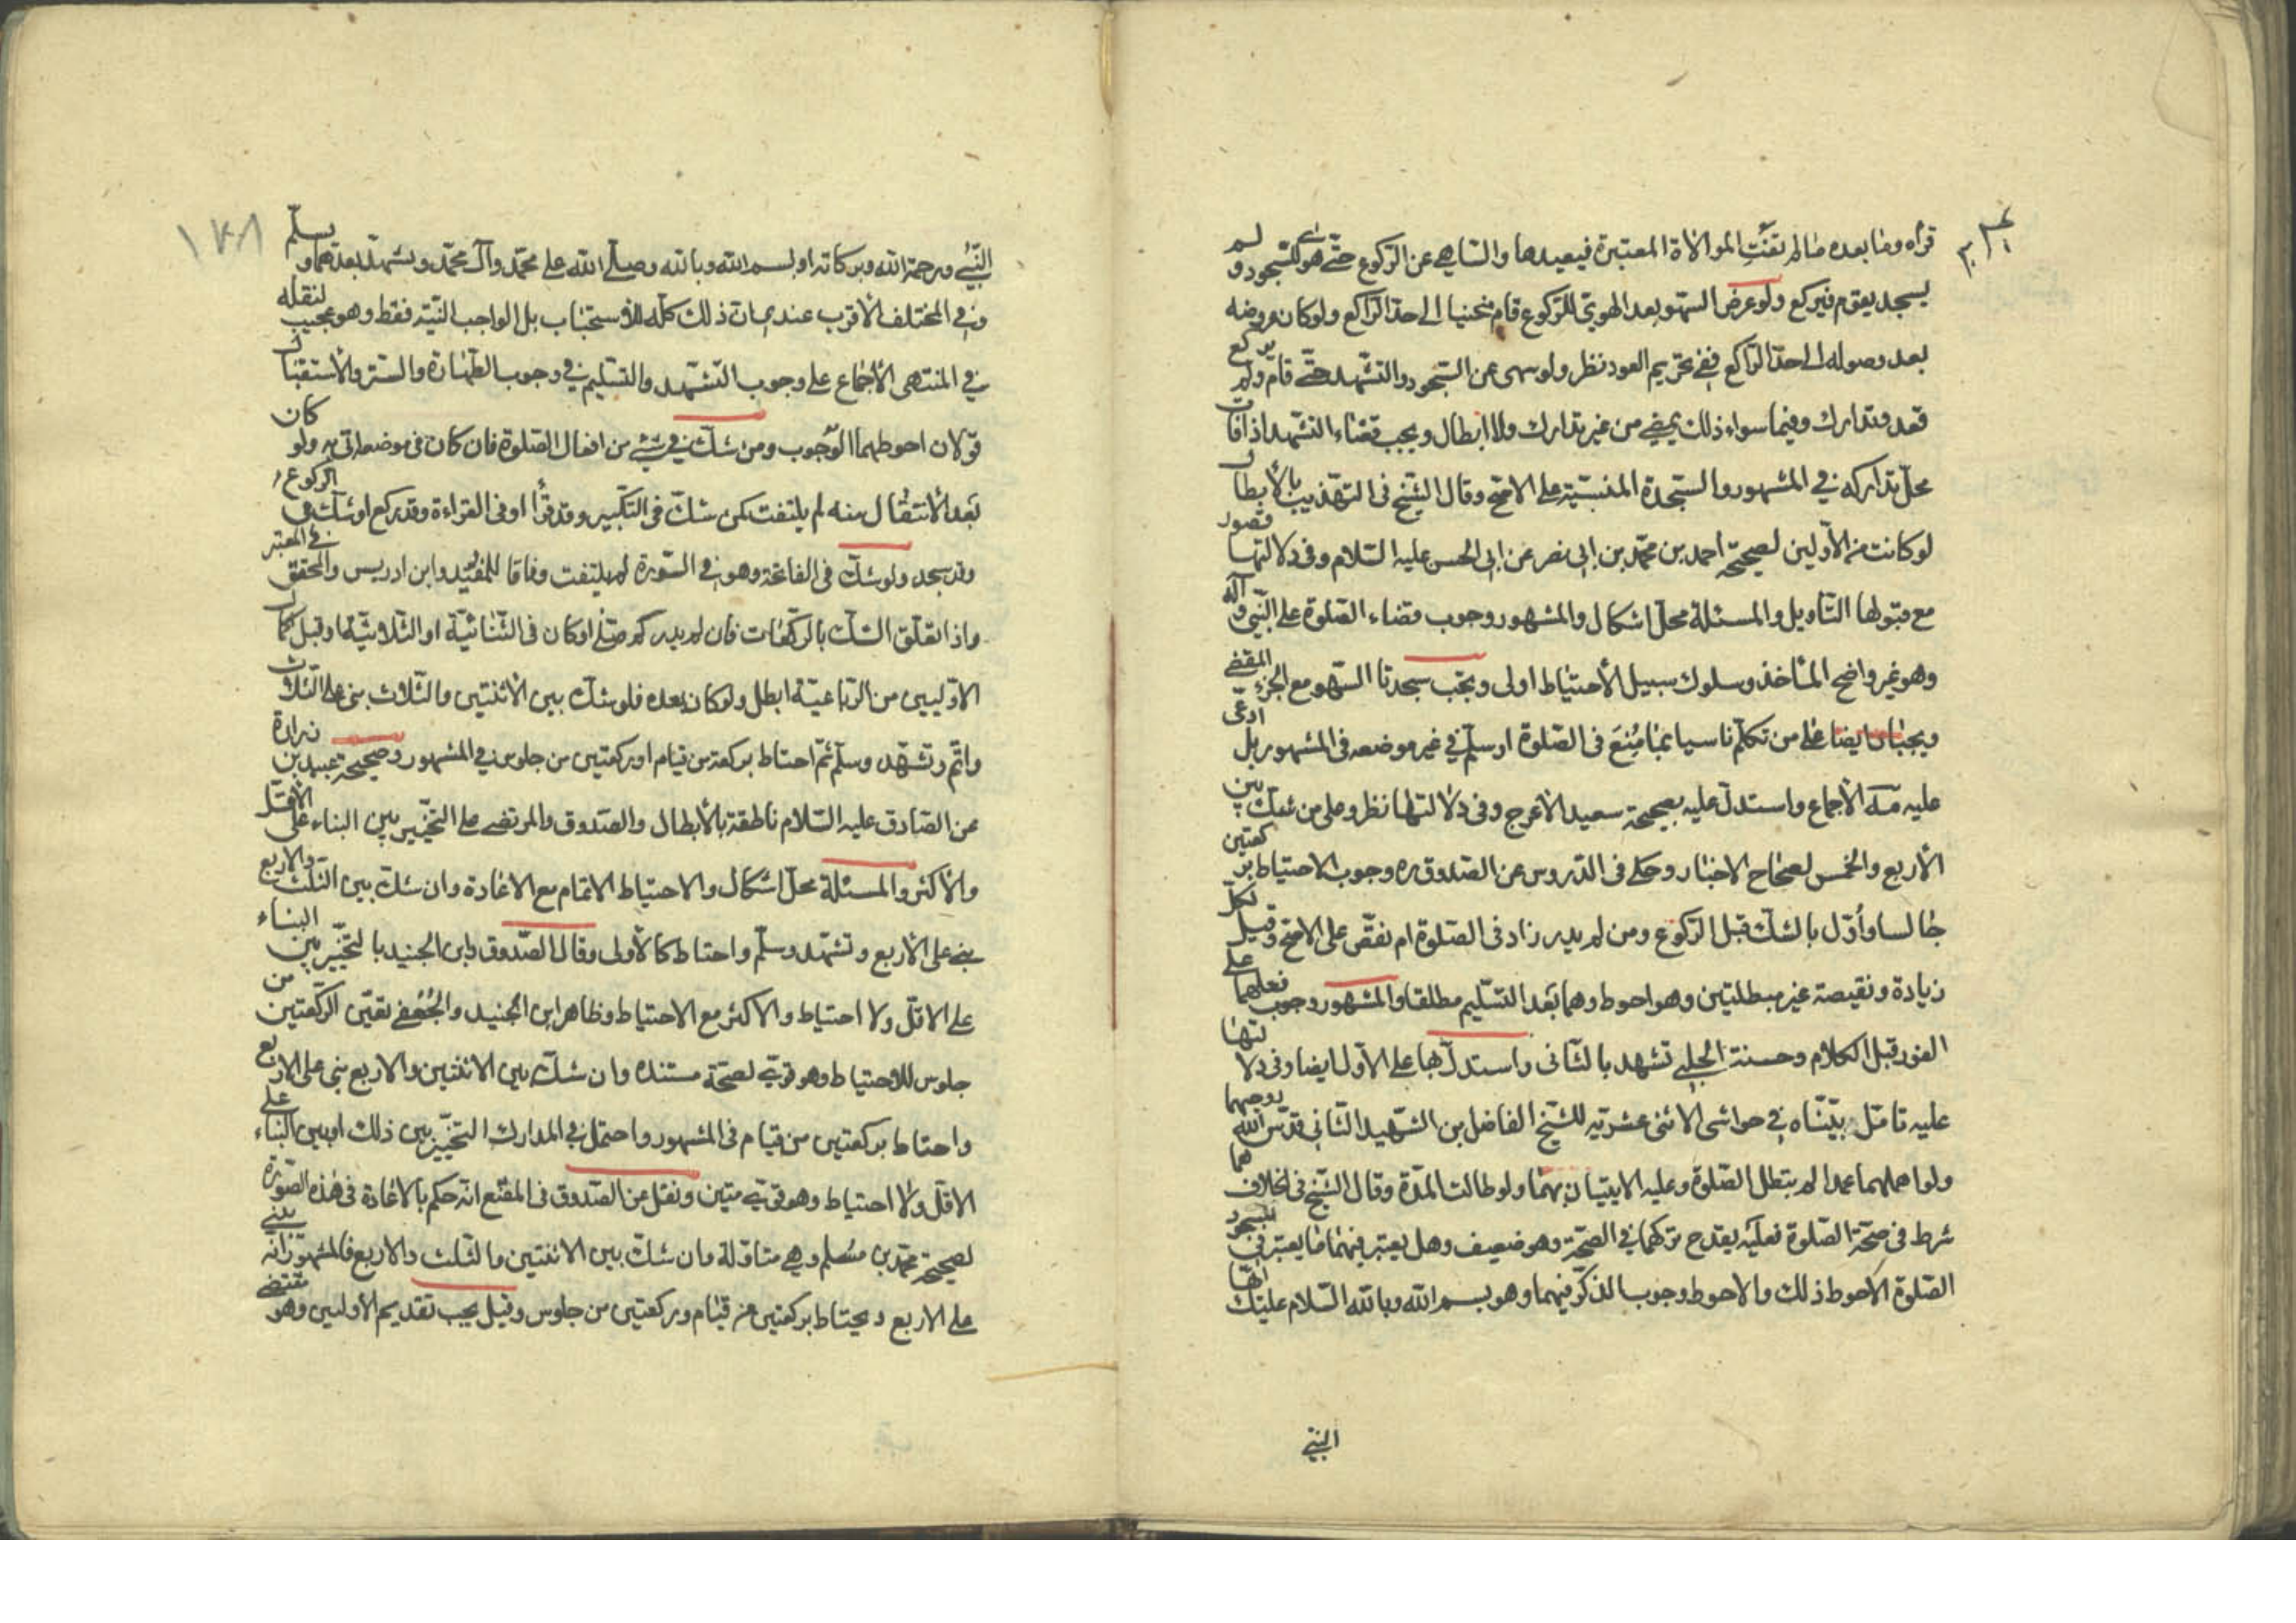 قراه وما بعده مالم تفت الموالاة المعتبرة فيعيدها والساهي عن الركوع حتى هوى للسجود و لم
يسجد يقوم فيركع ولو عرض السهو بعد الهوي للركوع قام منحنيا الى حد الراكع ولو كان عروضه
بعد وصوله الى حد الراكع ففي تحريم العود نظر ولو سهى عن السجود والتشهد حتى قام ولم يركع
قعد وتدارك وفيما سواء ذلك يمضي من غير تدارك ولا ابطال ويجب قضاء التشهد اذا فات
محل تداركه في المشهور والسجدة المنسيّة على الاصح وقال الشيخ فى التهذيب بالأبطال
لو كانت من الأولين لصحيحة احمد بن محمّد بن ابى نصر عن ابى الحسن عليه السّلام وفى دلالتها قصور
مع قبولها التأويل والمسئلة محلّ اشكال والمشهور وجوب قضاء الصّلوة على النّبي وآله
وهو غير واضح المأخذ وسلوك سبيل الأحتياط اولى ويجب سجدتا السّهو مع الجزء المقضي
ويجبان ايضا على من تكلّم ناسيا بما مُنِعَ فى الصّلوة او سلّم في غير موضعه فى المشهور بل ادعى
عليه الأجماع واستدلّ عليه بصحيحة سعيد الأعرج وفى دلالتها نظر وعلى من شكّ بين
الأربع والخمس لصحاح الاخبار وحكى فى الدّروس عن الصّدوق ره وجوب الاحتياط بركعتين
جالسا وأوّل بالشكّ قبل الرّكوع ومن لم يدر زاد فى الصّلوة ام نقّص على الاصح وقيل لكل
زيادة ونقيصة غير مبطلتين وهو احوط وهما بَعَد التسليم مطلقا والمشهور وجوب فعلهما على
الفور قبل الكلام وحسنة الحلبي تشهد بالثّانى واستدلّ بها على الأول ايضا وفى دلالتها
عليه تامّل بيّنّاه في حواشى الاثنى عشريّه للشّيخ الفاضل بن الشّهيد الثّانى قدّس الله روحهما
ولو اهملهما عمدا لم يبطل الصّلوة وعليه الايتيان بهما ولو طالت المدّة وقال الشّيخ فى الخلاف هما
شرط فى صحّة الصّلوة فعليه يقدح تركهما في الصحّة وهو ضعيف وهل يعتبر فيهما ما يعتبر في سجود
الصّلوة الأحوط ذلك والاحوط وجوب الذكر فيهما وهو بسم الله وبالله السّلام عليك ايّها
النبي
١٧٨
النّبي ورحمة الله وبركاته او بسم الله وبالله وصلّى الله على محمّد وآل محمّد وتشهد بعدهما و يسلّم
وفي المختلف الأقرب عندى ان ذلك كلّه للأستحباب بل الواجب النيّة فقط وهو عجيب لنقله
في المنتهى الأجماع على وجوب التشهّد والتسليم وفي وجوب الطّهارة والستر والأستقبال
قولان احوطهما الوجوب ومن شكّ في شيء من افعال الصّلوة فان كان فى موضعه اتى به ولو كان
بَعد الأنتقال منه لم يلتفت كمن شكّ فى التكبير وقد قرأ او فى القراءة وقد ركع او شكّ في الركوع
وقد سجد ولو شكّ فى الفاتحة وهو في السّورة لم يلتفت وفاقا للمفيد وابن ادريس والمحقق في المعتبر
واذا تعلّق الشكّ بالركعات فان لم يدر كم صلّى او كان فى الثّنائيّة او الثّلاثيّة او قبل كمال
الاوّليين من الرّباعيّة ابطل ولو كان بعده فلو شكّ بين الأثنتين والثّلاث بنى على الثلاث
واتّم وتشهّد وسلّم ثمّ احتاط بركعة من قيام او بركعتين من جلوس في المشهور وصحيحة عبيد بن زرارة
عن الصّادق عليه السّلام ناطقة بالأبطال والصّدوق والمرتضى على التخيير بين البناء على الأقل
والأكثر والمسئلة محلّ اشكال والاحتياط الاتمام مع الاعادة وان شكّ بين الثلث والاربع
بنى على الأربع وتشهّد وسلّم واحتاط كالأولى وقال الصّدوق وابن الجنيد بالتخيير بين البناء
على الاقلّ ولا احتياط والاكثر مع الاحتياط وظاهر ابن الجنيد والجُعفي تعيّن الركعتين من
جلوس للاحتياط وهو قويّ لصحّة مستنده وان شكّ بين الاثنتين والاربع بنى على الاربع
واحتاط بركعتين من قيام فى المشهور واحتمل في المدارك التخيير بين ذلك وبين البناء على
الاقلّ ولا احتياط وهو قويّ متين ونقل عن الصّدوق فى المقنع انّه حكم بالاعادة فى هذه الصّورة
لصحيحة محمّد بن مسلم وهي متاوّلة وان شكّ بين الاثنتين والثلث والاربع فالمشهور انّه يبني
على الاربع ويحتاط بركعتين من قيام وبركعتين من جلوس وقيل يجب تقديم الأوليين وهو مقتضى